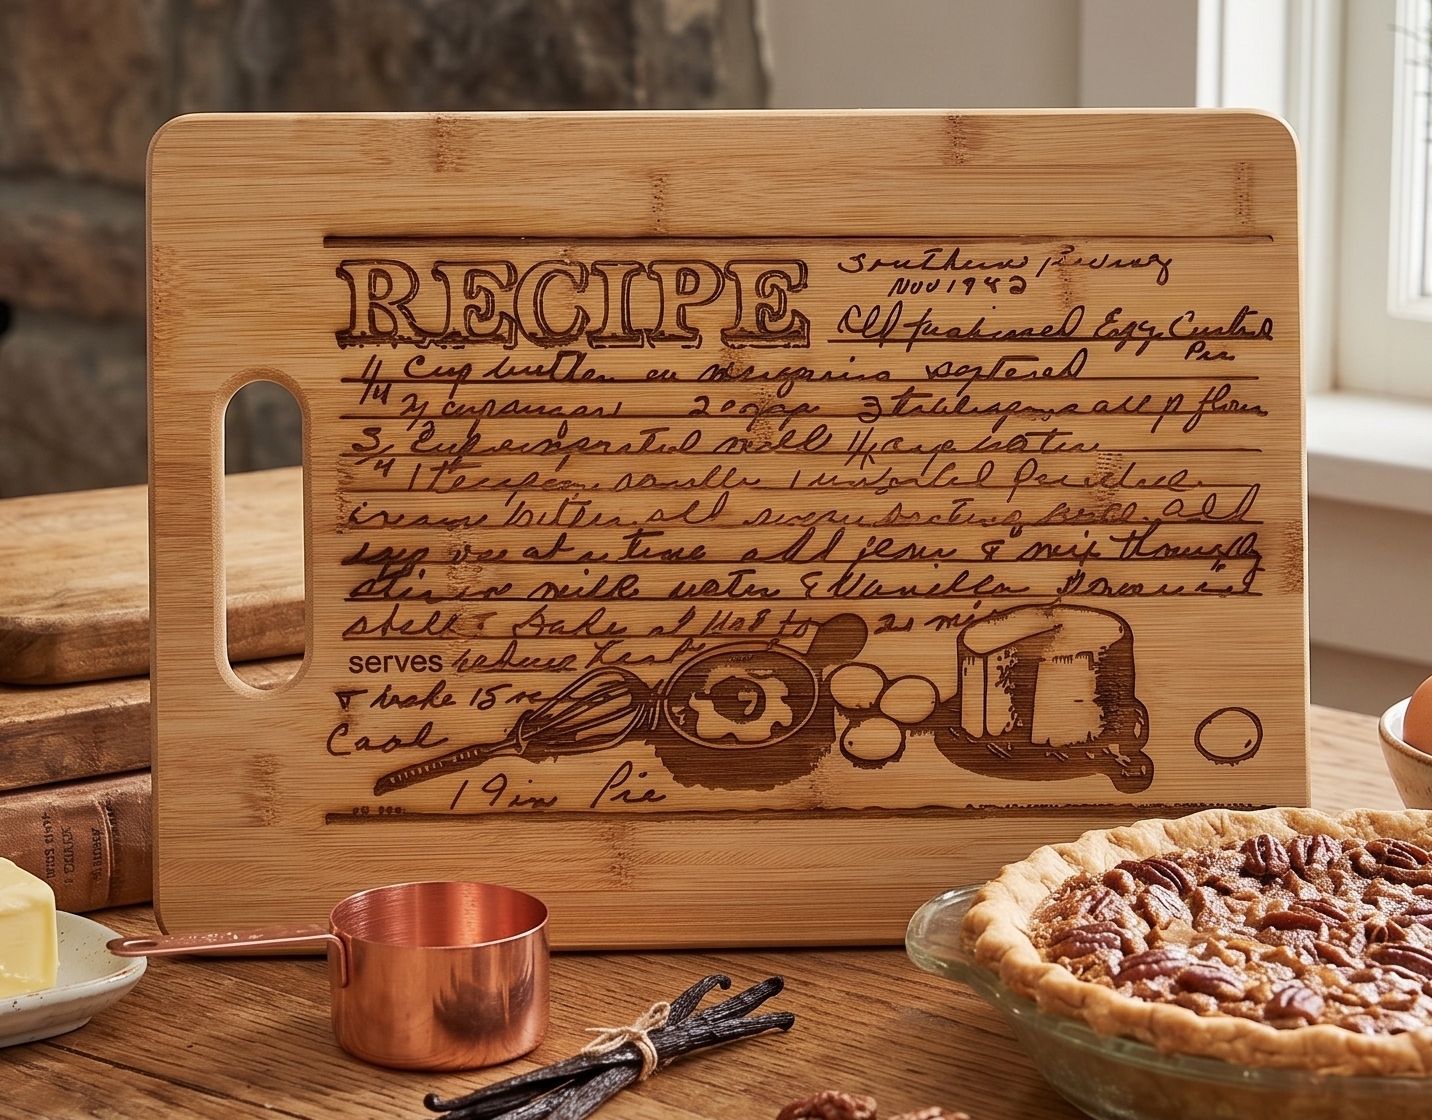 RECIPE
Southern
Nov 1982
Old fashioned Egg Custard
Pie
1/4 Cup butter or softened
2/3 cup sugar 2 eggs 3 tablespoons all p flour
3/4 Cup evaporated milk 1/4 cup water
1 teaspoon vanilla 1 unbaked
cream butter add sugar beating well add
egg one at a time add flour & mix thoroughly
stir in milk water & Vanilla in
shell. bake at 400 for 20 min
serves reduce heat
& bake 15
Cool
1 9 in Pie